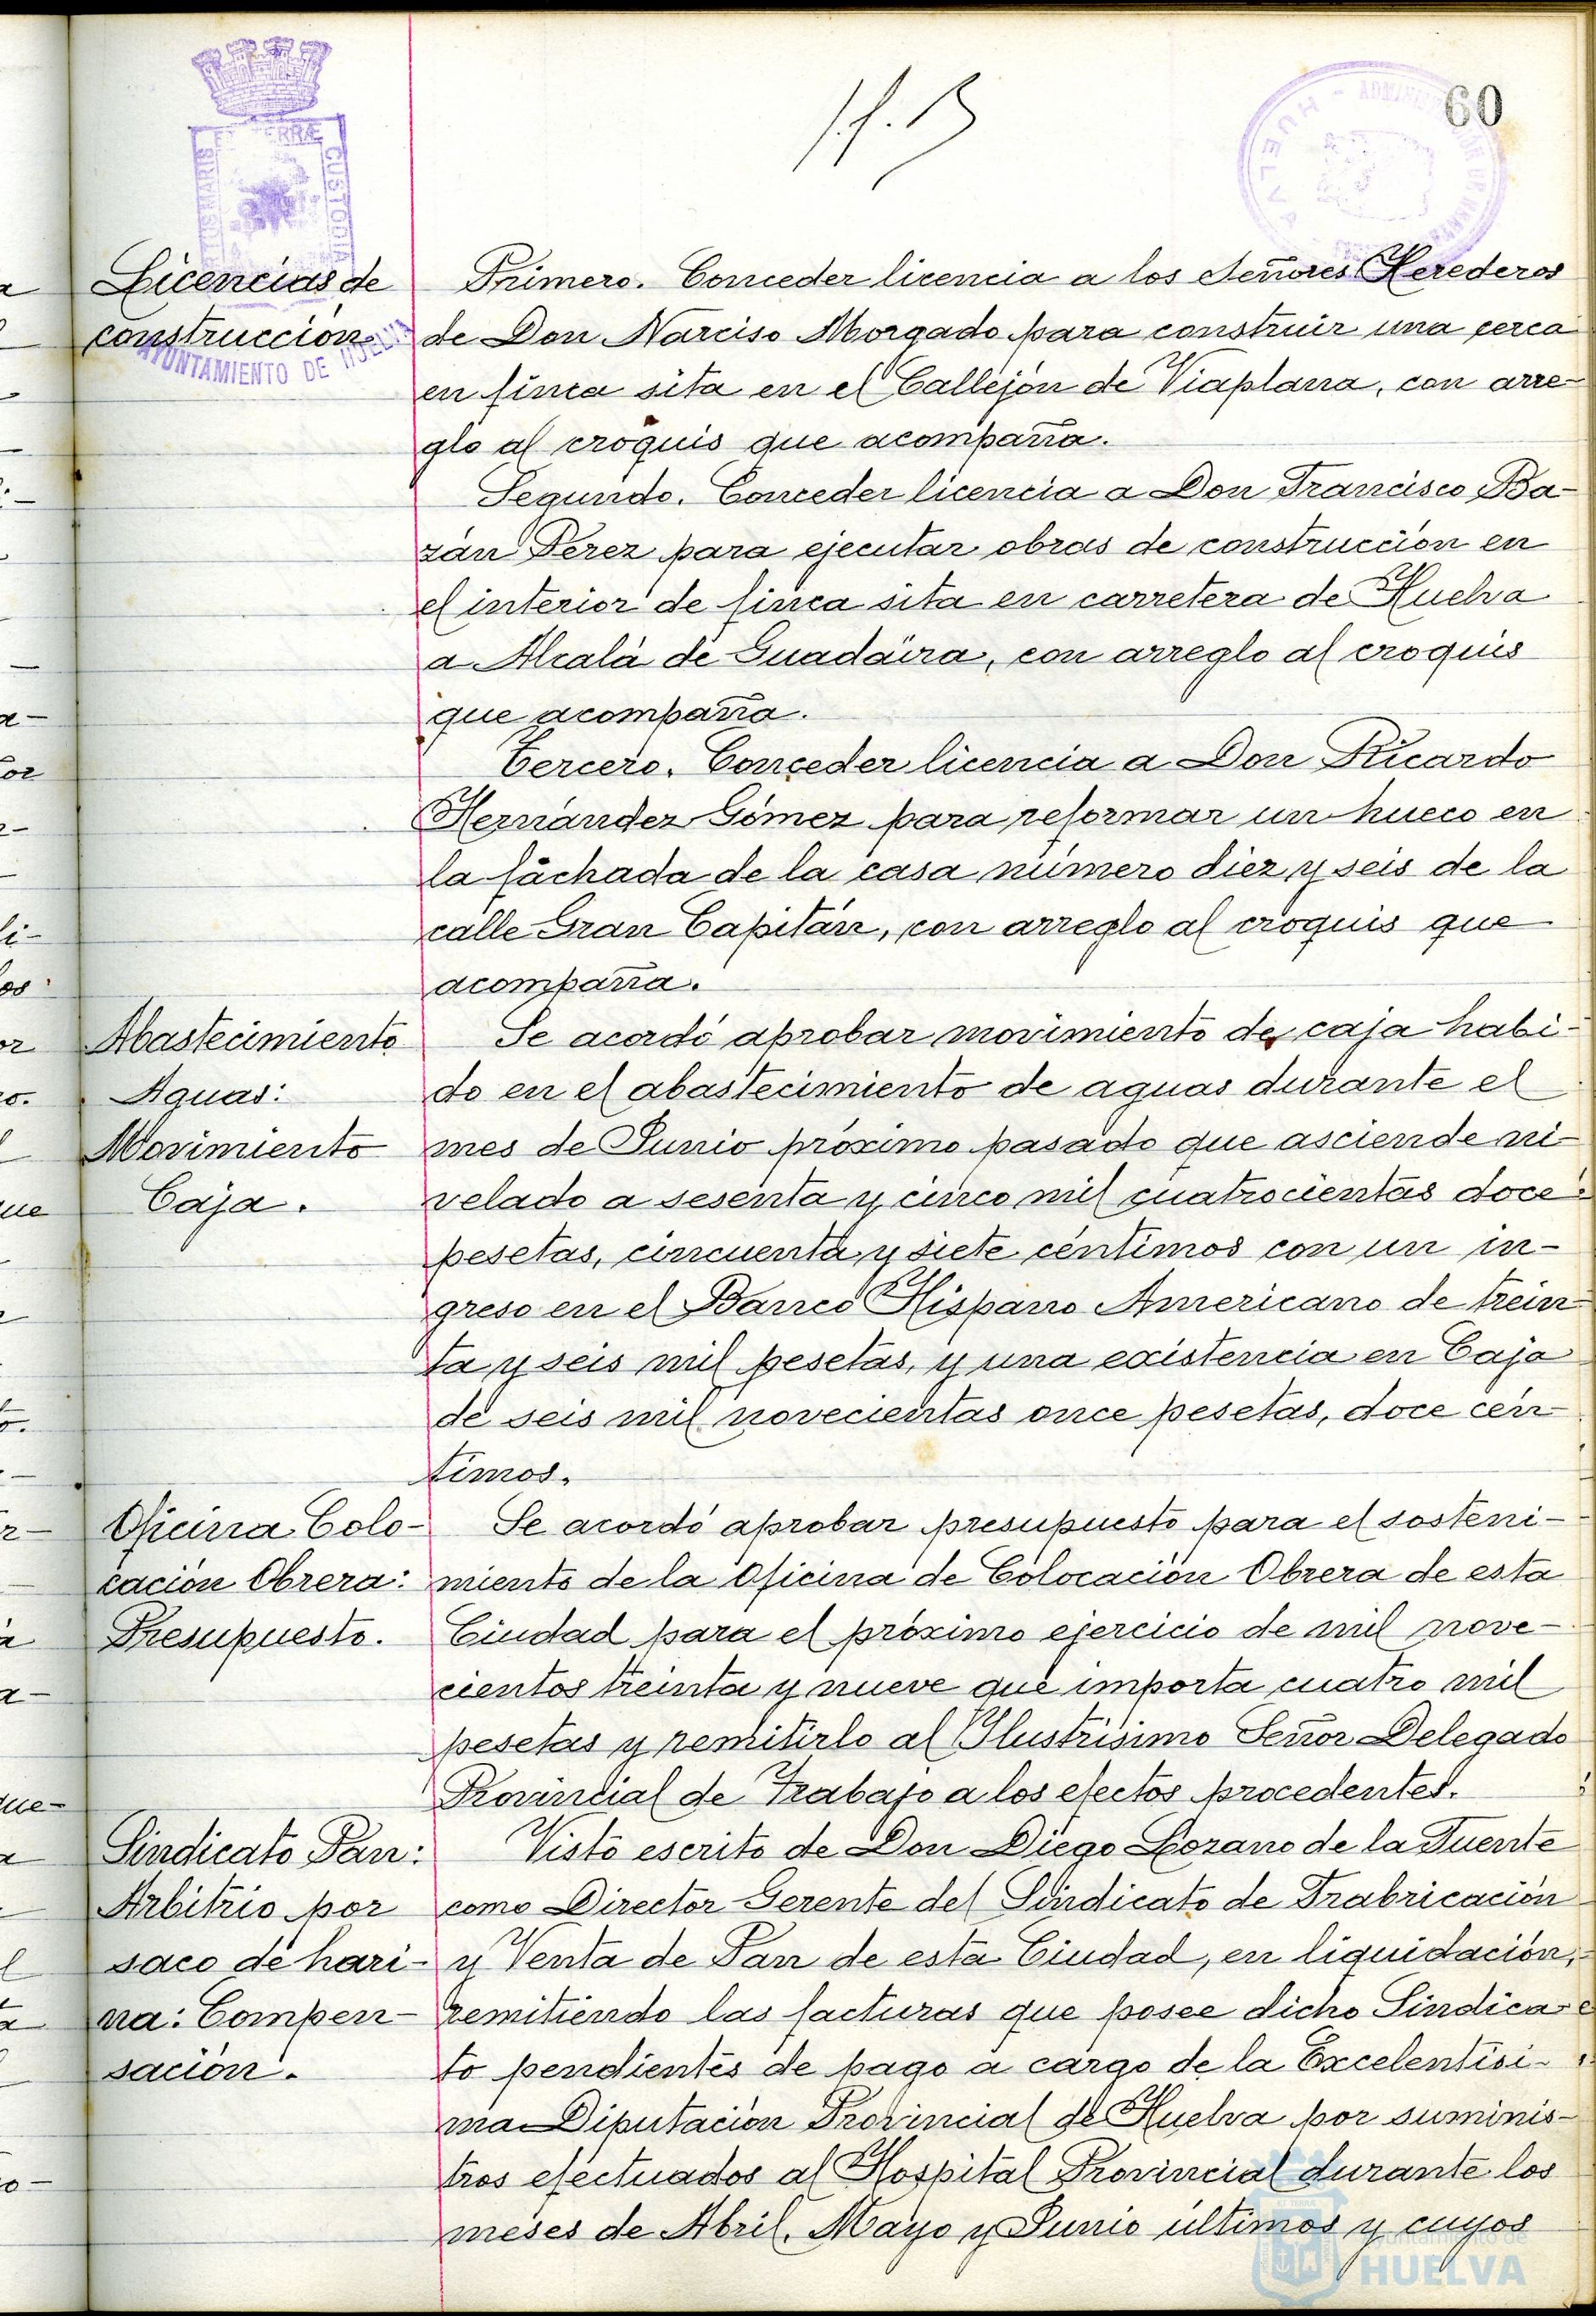 60
Licencias de
construcción.
Primero. Conceder licencia a los Señores Herederos
de Don Narciso Morgado para construir una cerca
en finca sita en el Callejón de Viaplana, con arre-
glo al croquis que acompaña.
Segundo. Conceder licencia a Don Francisco Ba-
zán Pérez para ejecutar obras de construcción en
el interior de finca sita en carretera de Huelva
a Alcalá de Guadaira, con arreglo al croquis
que acompaña.
Tercero. Conceder licencia a Don Ricardo
Hernández Gómez para reformar un hueco en
la fachada de la casa número diez y seis de la
calle Gran Capitán, con arreglo al croquis que
acompaña.
Abastecimiento
Aguas:
Movimiento
Caja.
Se acordó aprobar movimiento de caja habi-
do en el abastecimiento de aguas durante el
mes de Junio próximo pasado que asciende ni-
velado a sesenta y cinco mil cuatrocientas doce
pesetas, cincuenta y siete céntimos con un in-
greso en el Banco Hispano Americano de trein-
ta y seis mil pesetas, y una existencia en Caja
de seis mil novecientas once pesetas, doce cén-
timos.
Oficina Colo-
cación Obrera:
Presupuesto.
Se acordó aprobar presupuesto para el sosteni-
miento de la Oficina de Colocación Obrera de esta
Ciudad para el próximo ejercicio de mil nove-
cientos treinta y nueve que importa cuatro mil
pesetas y remitirlo al Ilustrísimo Señor Delegado
Provincial de Trabajo a los efectos procedentes.
Sindicato Pan:
Arbitrio por
saco de hari-
na: Compen-
sación.
Visto escrito de Don Diego Lozano de la Fuente
como Director Gerente del Sindicato de Frabricación
y Venta de Pan de esta Ciudad, en liquidación,
remitiendo las facturas que posee dicho Sindica-
to pendientes de pago a cargo de la Excelentísi-
ma Diputación Provincial de Huelva por suminis-
tros efectuados al Hospital Provincial durante los
meses de Abril, Mayo y Junio últimos y cuyos
AYUNTAMIENTO DE HUELVA
CUSTODIA
HUELVA
Ayuntamiento de
HUELVA